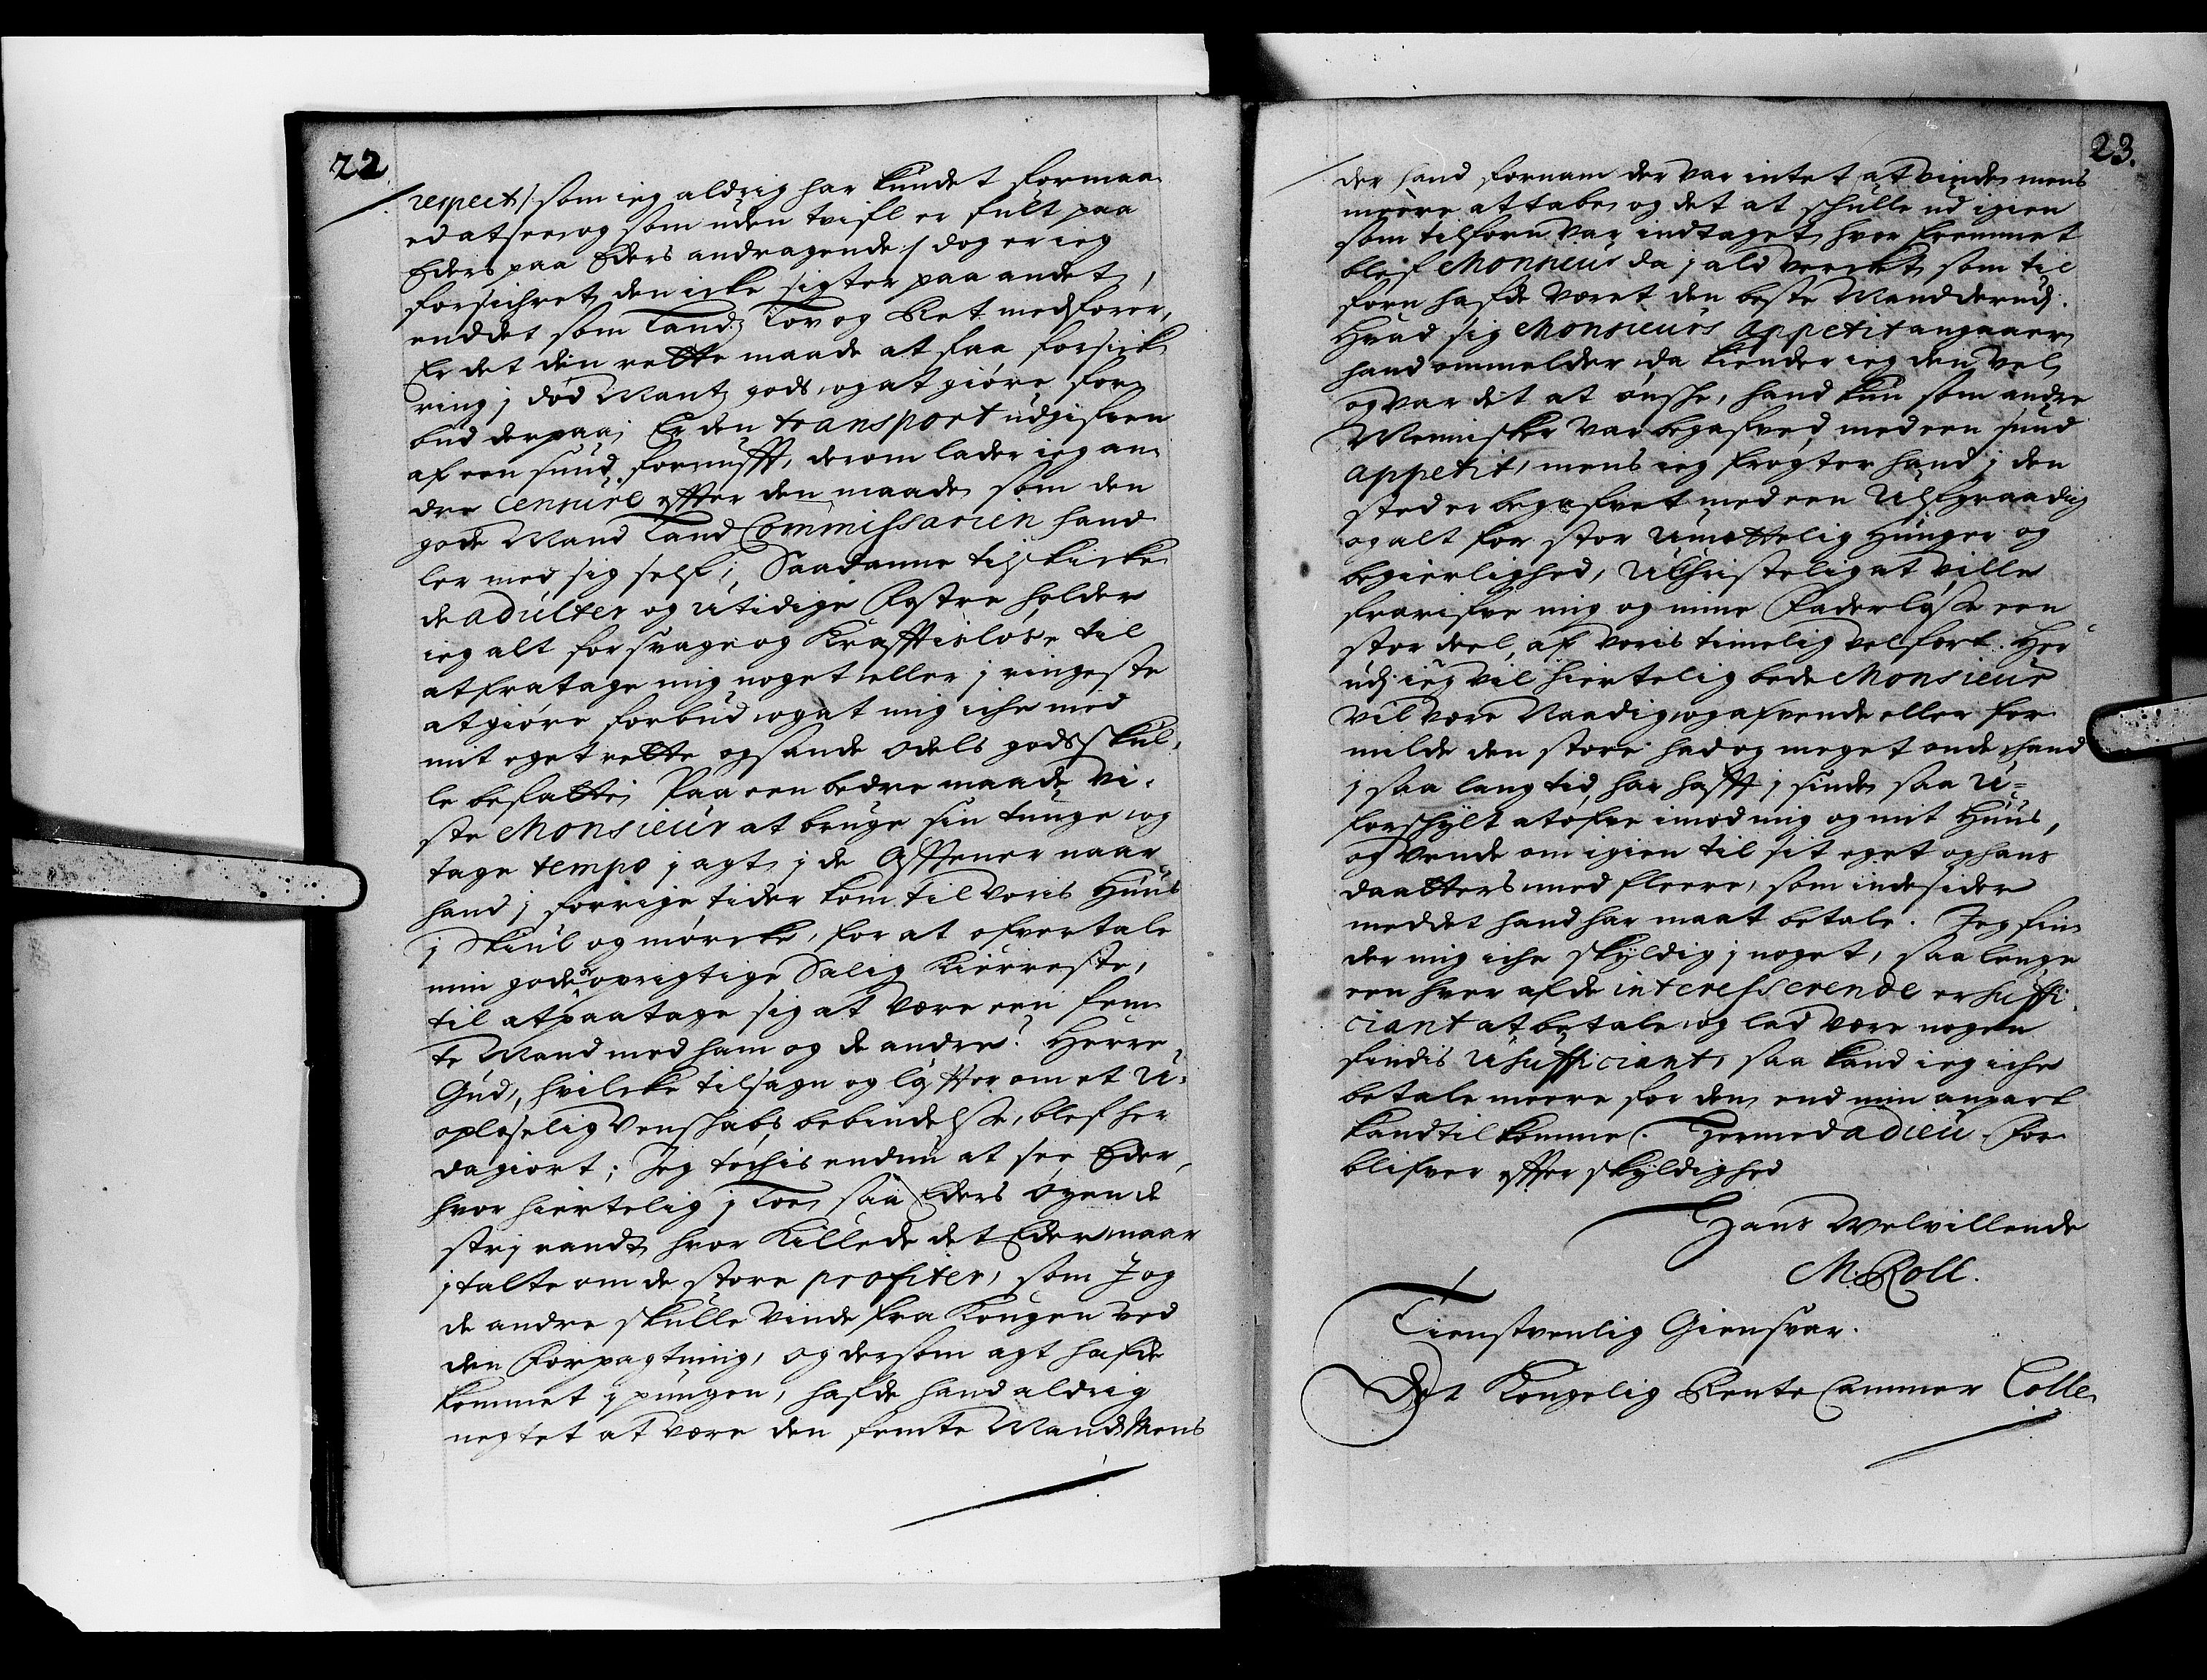 22
respect) som ieg aldrig har kundet formaa
ed at see, og som uden tvifl er fult paa
Eders paa Eders andragende :/ dog er ieg
forsichret, den icke sigter paa andet,
end det som Lands Lov og Ret medfører,
Er det den rette maade at faa forsick
ring i død Mantz gods, og at giøre for
bud derpaa; Er den transport udgifven
af een sund fornufft, derom lader ieg an
dre censure effter den maade, som den
gode Mand Land Commissarien hand
ler med sig self; Saadanne tilskicke
de adulter og utidige Køstre holder
ieg alt for svage og Krafftisløse, til
at fratage mig noget eller i ringeste
at giøre forbud, og at mig iche med
mit eget rette og sande odels gods skul,
le befatte; Paa een bedre maade vi,
ste Monsieur at bruge sin tunge, og
tage tempo i agt i de Afftener naar
hand i forrige tider kom til voris Huus
i Skiul og mørcke, for at ofvertale
min gode oprigtige Salig Kierreste,
til at paatage sig at være een fem
te Mand med ham og de andre? Herre
Gud, hvilcke tilsagn og løffter om et U,
opløselig Venskabs bebindelse, blef her
da giort; Jeg tochis endnu at see Eder,
hvor hiertelig i Loe, saa Eders Øgen de
strj randt, hvor Killede det Eder naar
i talte om de store profiter, som J og
de andre skulle vinde fra Kongen ved
den Forpagtning, og dersom agt hafde
kommet i pungen, hafde hand aldrig
negtet at være den femte Mand, Mens
23.
der hand fornam der var intet at vinde mens
meere at tabe, og det at skulle ud igien
som tilforn var indtaget, hvor fremmet
blef Monsieur da i ald verket, som til
forn hafde veret den beste Mand derudj.
Hvad sig Monsieurs Appetit angaaer,
hand ommelder, da kiender ieg den vel,
og var det at ønske, hand kun som andre
Mennisker var begafved, med een sund
appetit, mens ieg frøgter hand i den
sted er begafvet med een Ulfgraadig
og alt for stor umættelig Hunger og
begierlighed, Uchristelig at ville
frarifve mig og mine Faderløse een
stor deel, af voris timelig velfært. Her
udj ieg vil hiertelig bede Monsieur
vil vere Naadig, og afvende eller for
milde den store had og meget onde, hand
i saa lang tid, har hafft i sinde saa U=
forskylt at øfve imod mig og mit Huus,
og vende om igien til sit eget og hans
daatters med fleere, som inde sider
med det hand har maat betale. Jeg fin
der mig iche skyldig i noget, saa lenge
een hver af de interesserende er suffi
ciant at betale, og lad vere nogen
findis usufficiant, saa kand ieg iche
betale meere for dem, end min anpart
kand tilkomme. Hermed adieu. For
blifver effter skyldighed
Hans Velvillende
M. Roll.
Tienstvenlig Giensvar.
Det Kongelig Rente Cammer Colle,